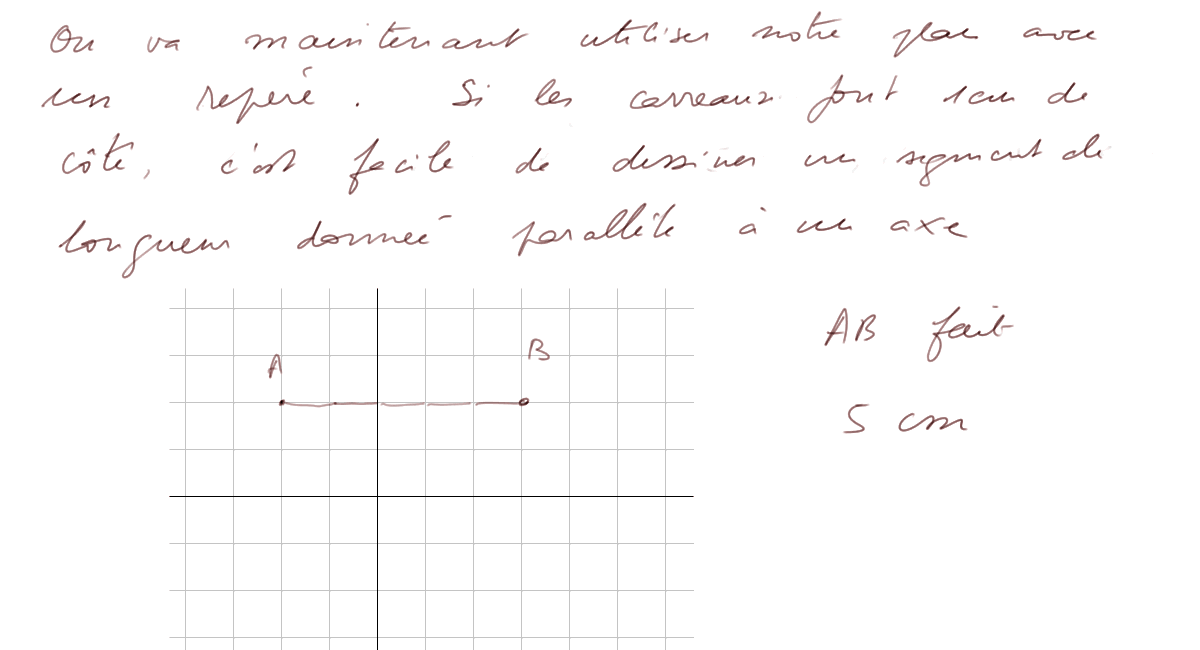 On va maintenant utiliser notre plan avec
un repéré. Si les carreaux font 1cm de
côté, c'est facile de dessiner un segment de
longueur donnée parallèle à un axe
A
B
AB fait
5 cm